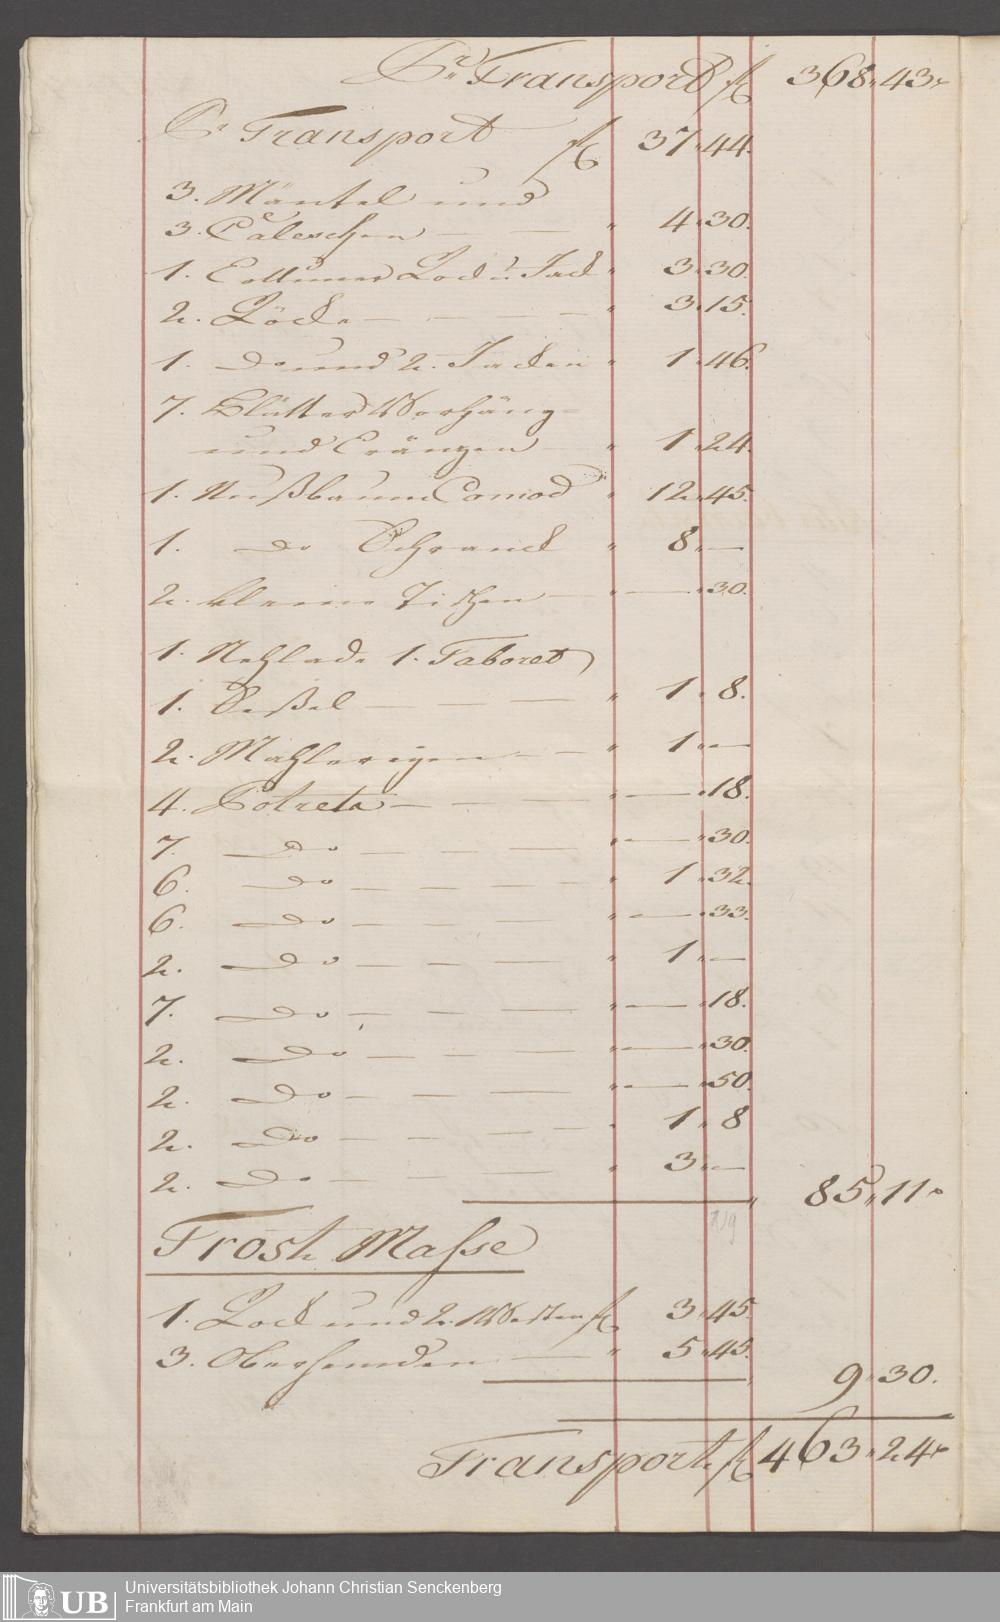 Pr. Transport fl 368 " 43 x
Pr. Transport fl 37 " 44.
3. Mäntel und
3. Caleschen — — " 4 " 30.
1. Cottuner Rock u. Jack " 3 " 30.
2. Röcke — — — — " 3 " 15.
1. Do und 2. Jacken " 1 " 46.
7. Blätter Vorhäng=
und Cränzen — " 1 " 24.
1. Nußbaum Comod " 12 " 45.
1. do Schranck " 8 " —
2. kleine Tischen — " — " 30.
1. Nehlade 1. Taboret
1. Seßel — — — " 1 " 8.
2. Mahlereyen — — " 1 " —
4. Potreta — — — " — " 18.
7. Do — — — " — " 30.
6. Do — — — — " 1 " 32.
6. Do — — — — " — " 33.
2. Do — — — " 1 " —
7. Do — — — — " — " 18.
2. Do — — — " — " 30.
2. Do — — — — " — " 50.
2. Do — — — — " 1 " 8
2. Do — — — " 3 " —
" 85 " 11 "
Frost. Masse
1. Rock und 2. Westen fl 3 " 45.
3. Oberhemden — " 5 " 45.
" 9 " 30.
Transport fl 463 " 24 x
UB
Universitätsbibliothek Johann Christian Senckenberg
Frankfurt am Main